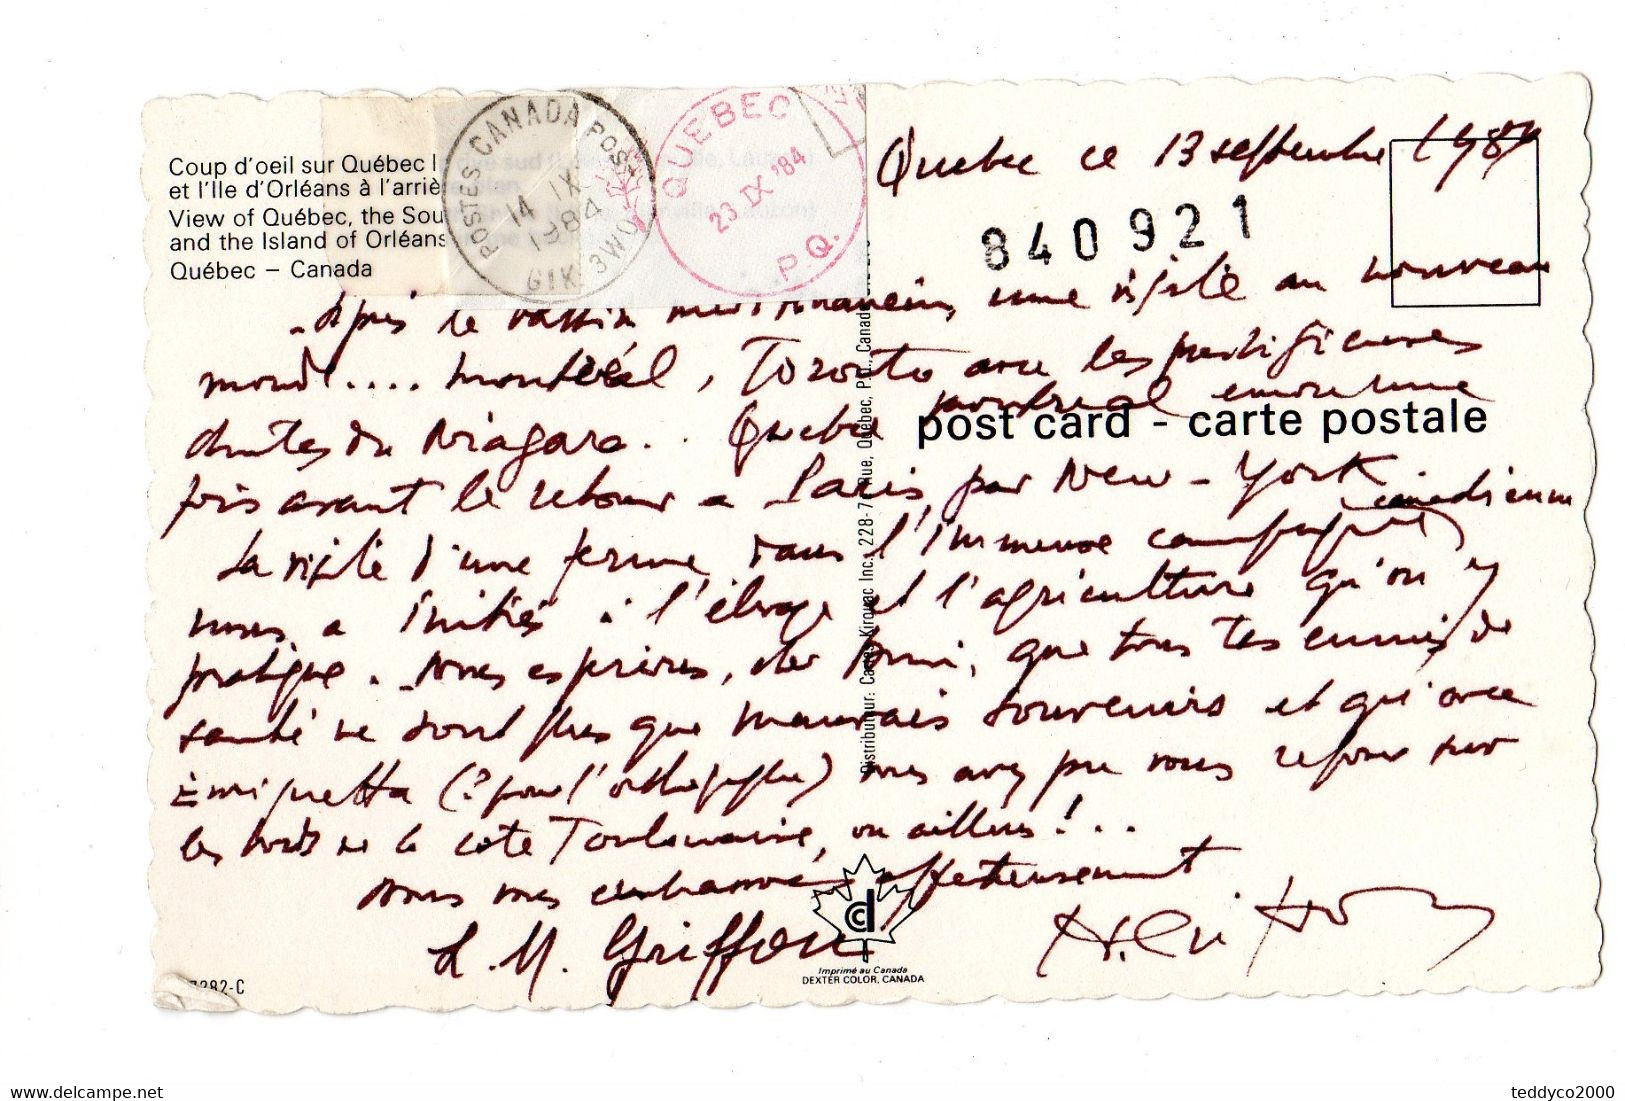 Coup d'oeil sur Québec l
et l'Ile d'Orléans à l'arriè
View of Québec, the Sou
and the Island of Orléans
Québec – Canada
POSTES CANADA POST
14 IX
1984
G1K 3W0
QUEBEC
23 IX '84
P.Q.
Quebec ce 13 septembre 1984
840921
Après le bassin mediterraneen, une visite au nouveau
monde.... Montréal, Toronto avec les prestigieuses
chutes du Niagara.. Quebec Montreal encore une
fois avant le retour a Paris, par New-York
canadienne
La visite d'une ferme dans l'immense campagne
nous a initiés à l'élevage et l'agriculture qu'on y
pratique. Nous espérons, cher Ami, que tous tes ennuis de
santé ne sont plus que mauvais souvenirs et qu'avec
(? pour l'orthographe) vous avez pu vous reposer sur
les bords de la côte Toulonnaise, ou ailleurs!...
Nous vous embrassons affectueusement
L. M. Griffon
post card - carte postale
Distributeur: Cartes Kirouac Inc. 228-7 Rue, Québec, P.Q., Canada
cd
Imprimé au Canada
DEXTER COLOR, CANADA
7282-C
delcampe.net
teddyco2000